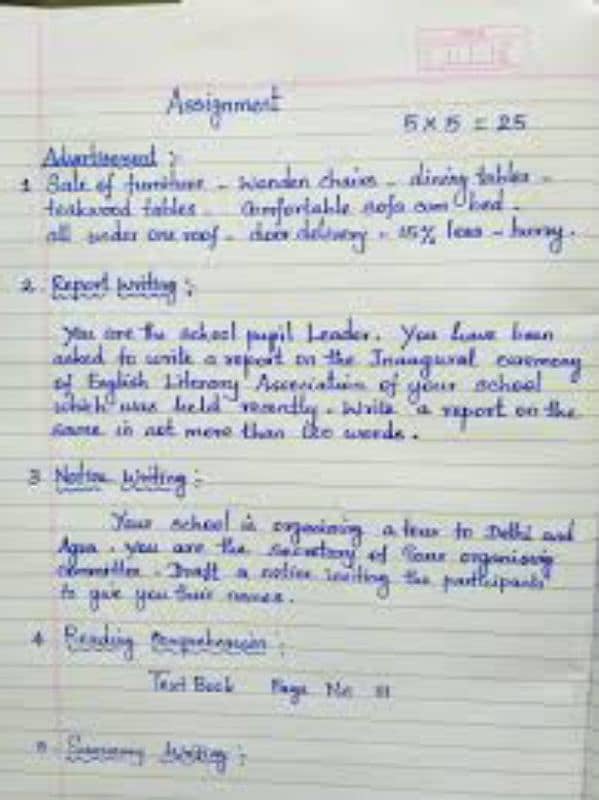 Assignment
5 x 5 = 25
Advertisement :
1 Sale of furniture - wooden chairs - dining tables -
teakwood tables - Comfortable sofa cum bed -
all under one roof - door delivery - 15% less - hurry.
2. Report Writing :
You are the school pupil Leader. You have been
asked to write a report on the Inaugural ceremony
of English Literary Association of your school
which was held recently. Write a report on the
same in not more than 120 words.
3 Notice Writing :
Your school is organising a tour to Delhi and
Agra. You are the secretary of tour organising
committee. Draft a notice inviting the participants
to give you their names.
4 Reading Comprehension :
Text Book Page No
Writing :